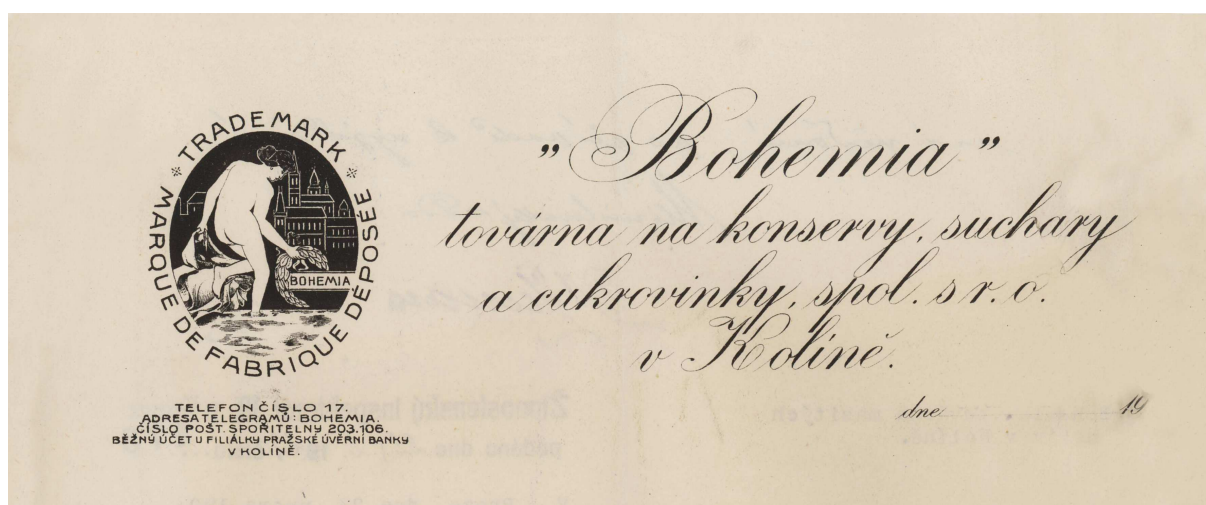 TRADE MARK
MARQUE DE FABRIQUE DÉPOSÉE
BOHEMIA
TELEFON ČÍSLO 17.
ADRESA TELEGRAMŮ: BOHEMIA
ČÍSLO POŠT. SPOŘITELNY 203.106.
BĚŽNÝ ÚČET U FILIÁLKY PRAŽSKÉ ÚVĚRNÍ BANKY
V KOLÍNĚ.
„Bohemia”
továrna na konservy, suchary
a cukrovinky, spol. s r. o.
v Kolíně.
dne 19